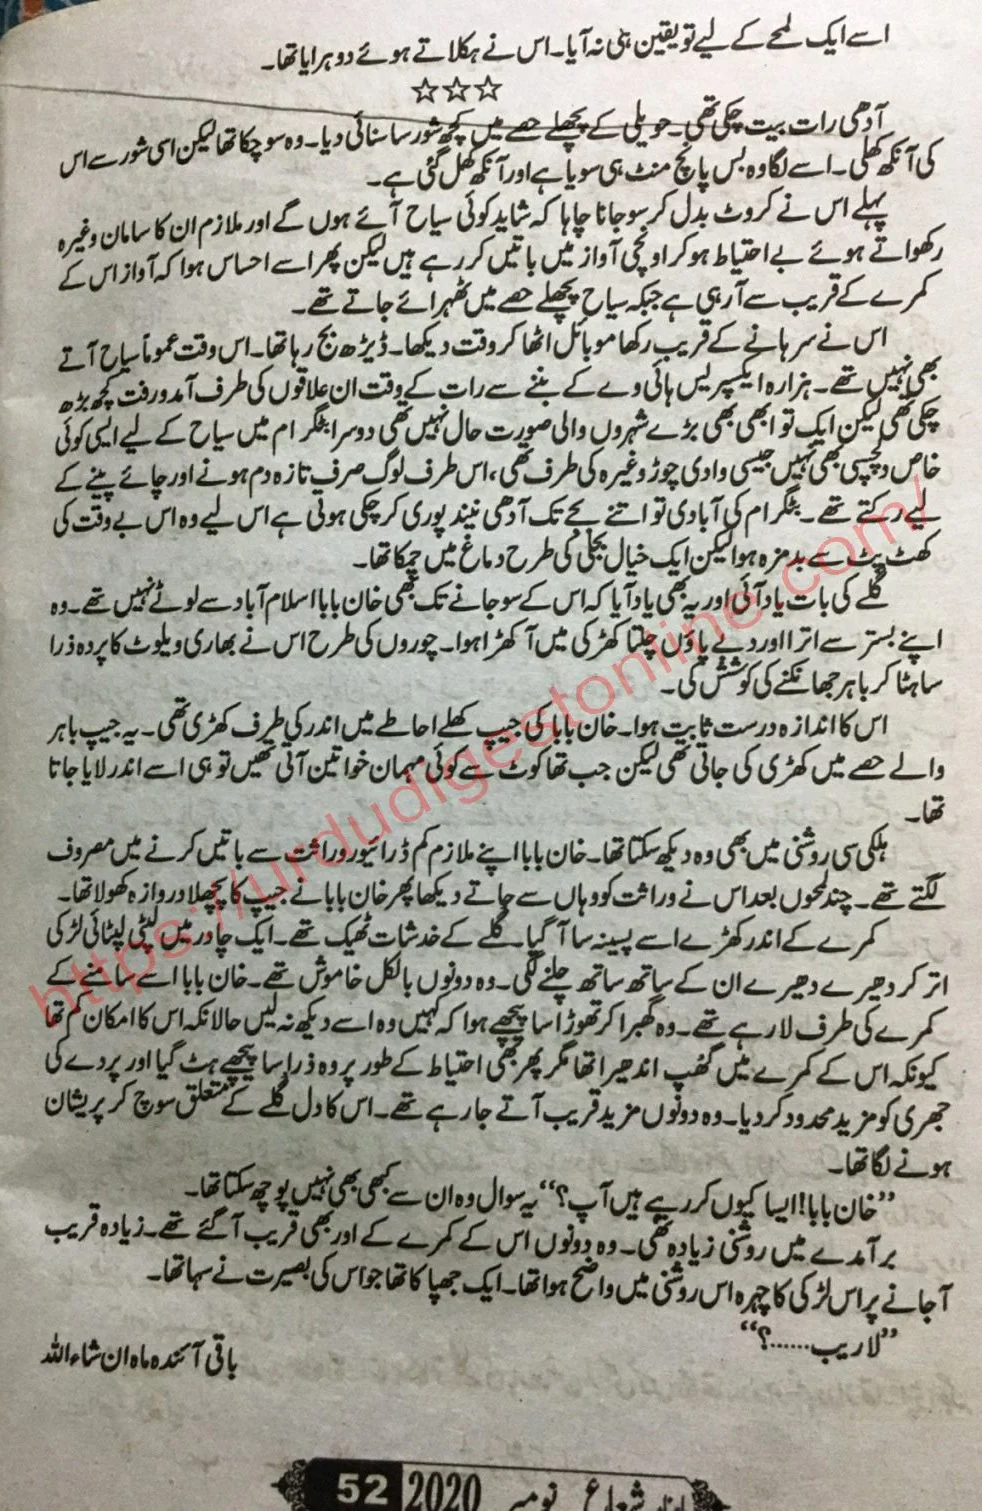 اسے ایک لمحے کے لیے تو یقین ہی نہ آیا۔ اس نے ہکلاتے ہوئے دوہرایا تھا۔
☆☆☆
آدھی رات بیت چکی تھی۔ حویلی کے پچھلے حصے میں کچھ شور سا سنائی دیا۔ وہ سو چکا تھا لیکن اسی شور سے اس
کی آنکھ کھلی۔ اسے لگا وہ بس پانچ منٹ ہی سویا ہے اور آنکھ کھل گئی ہے۔
پہلے اس نے کروٹ بدل کر سو جانا چاہا کہ شاید کوئی سیاح آئے ہوں گے اور ملازم ان کا سامان وغیرہ
رکھواتے ہوئے بے احتیاط ہو کر اونچی آواز میں باتیں کر رہے ہیں لیکن پھر اسے احساس ہوا کہ آواز اس کے
کمرے کے قریب سے آ رہی ہے جبکہ سیاح پچھلے حصے میں ٹھہرائے جاتے تھے۔
اس نے سرہانے کے قریب رکھا موبائل اٹھا کر وقت دیکھا۔ ڈیڑھ بج رہا تھا۔ اس وقت عموماً سیاح آتے
بھی نہیں تھے۔ ہزارہ ایکسپریس ہائی وے کے بننے سے رات کے وقت ان علاقوں کی طرف آمدورفت کچھ بڑھ
چکی تھی لیکن ایک تو ابھی بھی بڑے شہروں والی صورت حال نہیں تھی دوسرا بٹگرام میں سیاح کے لیے ایسی کوئی
خاص دلچسپی بھی نہیں جیسی وادی چوڑ وغیرہ کی طرف تھی، اس طرف لوگ صرف تازہ دم ہونے اور چائے پینے کے
لیے رکتے تھے۔ بٹگرام کی آبادی تو اتنے بجے تک آدھی نیند پوری کر چکی ہوتی ہے اس لیے وہ اس بے وقت کی
کھٹ پٹ سے بدمزہ ہوا لیکن ایک خیال بجلی کی طرح دماغ میں چمکا تھا۔
گلے کی بات یاد آئی اور یہ بھی یاد آیا کہ اس کے سو جانے تک بھی خان بابا اسلام آباد سے لوٹے نہیں تھے۔ وہ
اپنے بستر سے اترا اور دبے پاؤں چلتا کھڑکی میں آ کھڑا ہوا۔ چوروں کی طرح اس نے بھاری ویلوٹ کا پردہ ذرا
سا ہٹا کر باہر جھانکنے کی کوشش کی۔
اس کا اندازہ درست ثابت ہوا۔ خان بابا کی جیپ کھلے احاطے میں اندر کی طرف کھڑی تھی۔ یہ جیپ باہر
والے حصے میں کھڑی کی جاتی تھی لیکن جب تھاکوٹ سے کوئی مہمان خواتین آتی تھیں تو ہی اسے اندر لایا جاتا
تھا۔
ہلکی سی روشنی میں بھی وہ دیکھ سکتا تھا۔ خان بابا اپنے ملازم کم ڈرائیور وراثت سے باتیں کرنے میں مصروف
لگتے تھے۔ چند لمحوں بعد اس نے وراثت کو وہاں سے جاتے دیکھا پھر خان بابا نے جیپ کا پچھلا دروازہ کھولا تھا۔
کمرے کے اندر کھڑے اسے پسینہ سا آ گیا۔ گلے کے خدشات ٹھیک تھے۔ ایک چادر میں لپٹی لپٹائی لڑکی
اتر کر دھیرے دھیرے ان کے ساتھ ساتھ چلنے لگی۔ وہ دونوں بالکل خاموش تھے۔ خان بابا اسے سامنے کے
کمرے کی طرف لا رہے تھے۔ وہ گھبرا کر تھوڑا سا پیچھے ہوا کہ کہیں وہ اسے دیکھ نہ لیں حالانکہ اس کا امکان کم تھا
کیونکہ اس کے کمرے میں گھپ اندھیرا تھا مگر پھر بھی احتیاط کے طور پر وہ ذرا سا پیچھے ہٹ گیا اور پردے کی
جھری کو مزید محدود کر دیا۔ وہ دونوں مزید قریب آتے جا رہے تھے۔ اس کا دل گلے کے متعلق سوچ کر پریشان
ہونے لگا تھا۔
”خان بابا! ایسا کیوں کر رہے ہیں آپ؟“ یہ سوال وہ ان سے کبھی بھی نہیں پوچھ سکتا تھا۔
برآمدے میں روشنی زیادہ تھی۔ وہ دونوں اس کے کمرے کے اور بھی قریب آ گئے تھے۔ زیادہ قریب
آ جانے پر اس لڑکی کا چہرہ اس روشنی میں واضح ہوا تھا۔ ایک جھپاکا تھا جو اس کی بصیرت نے سہا تھا۔
”لاریب......؟“
باقی آئندہ ماہ ان شاء اللہ
ماہنامہ شعاع نومبر 2020 52
https://urdudigestonline.com/